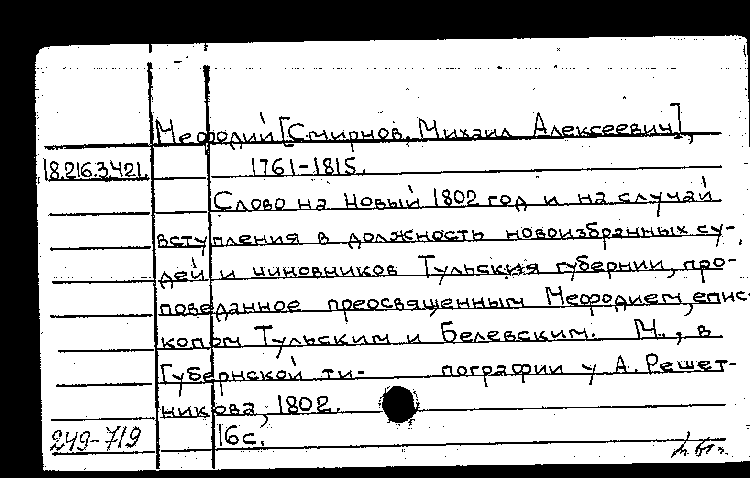 Мефодий [Смирнов, Михаил Алексеевич],
18.216.3421. 1761-1815.
Слово на Новый 1802 год и на случай
вступления в должность новоизбранных су-
дей и чиновников Тульския губернии, про-
поведанное преосвященным Мефодием, епис-
копом Тульским и Белевским. М., в
Губернской ти- пографии у А. Решет-
никова, 1802.
249-719 16 с.